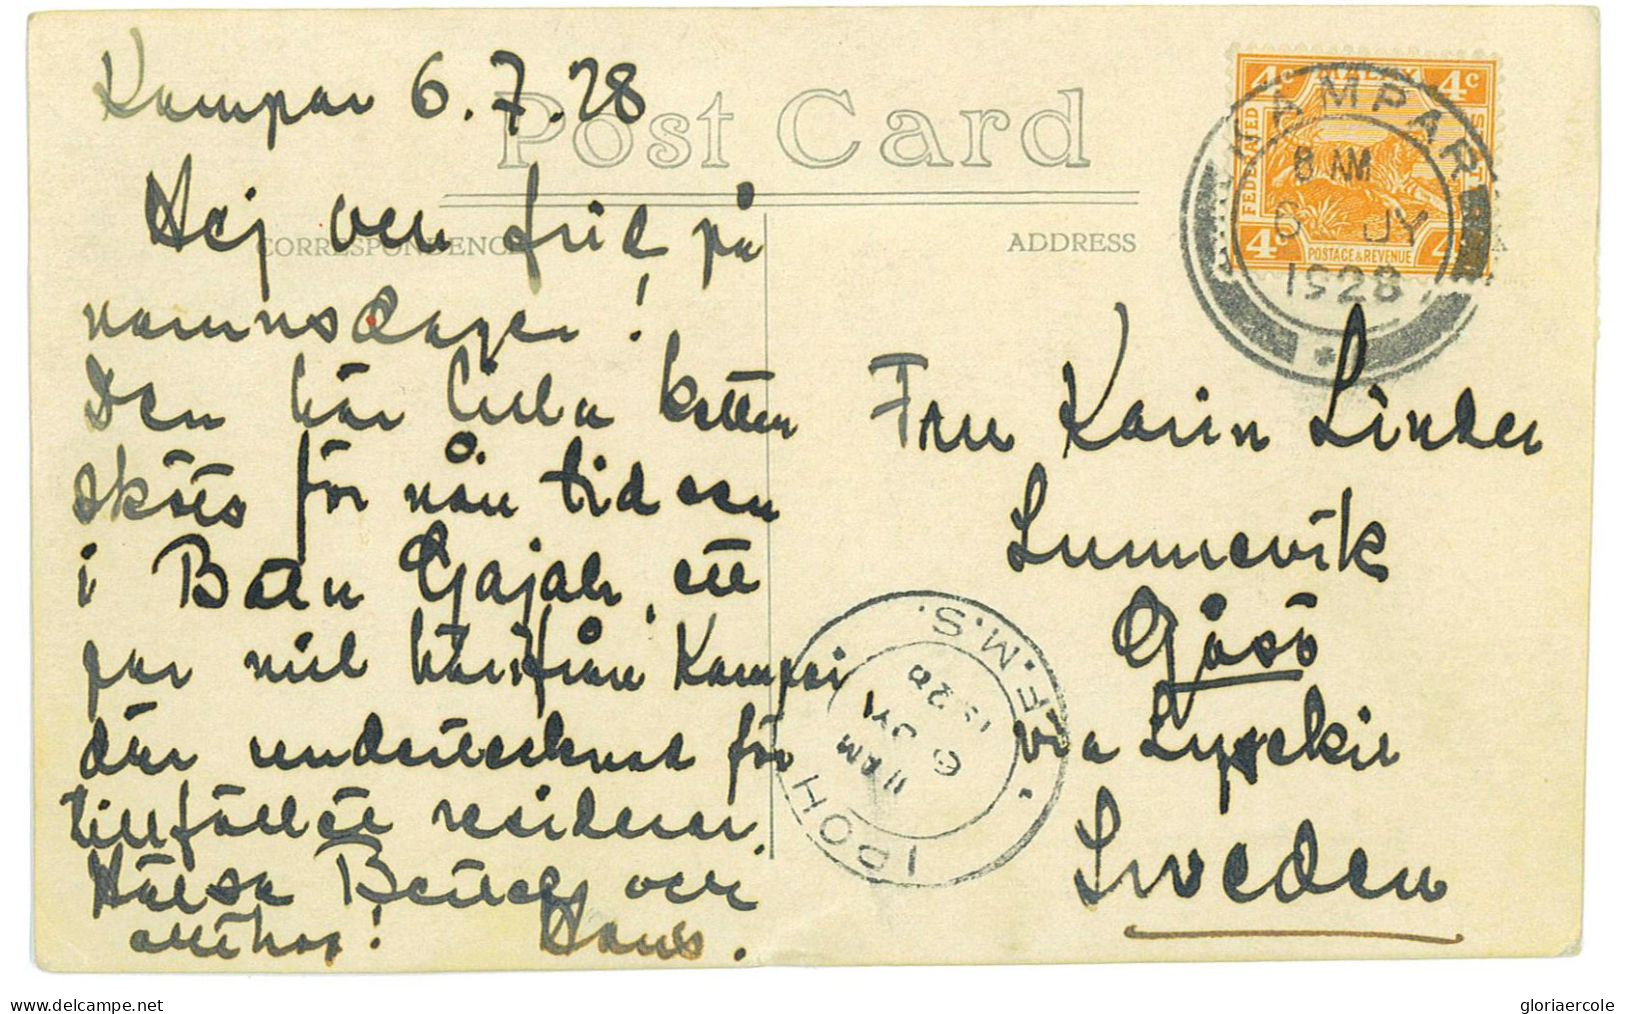 Kampar 6.7.28
Post Card
CORRESPONDENCE
ADDRESS
Hej och frid på
namnsdagen!
Den här lilla ketten
sköts för nån tid sen
i Batu Gajah, ett
par mil härifrån Kampar
där undertecknad för
tillfället residerar.
Hälsa Bertil och
allihop! Hans.
4c MALAY 4c
FEDERATED
STATES
POSTAGE & REVENUE
4c
KAMPAR
8 AM
6 JY
1928
Fru Karin Linder
Lunnevik
Gåsö
via Lysekil
Sweden
IPOH
F.M.S.
11 AM
6 JY
1928
delcampe.net
gloriaercole